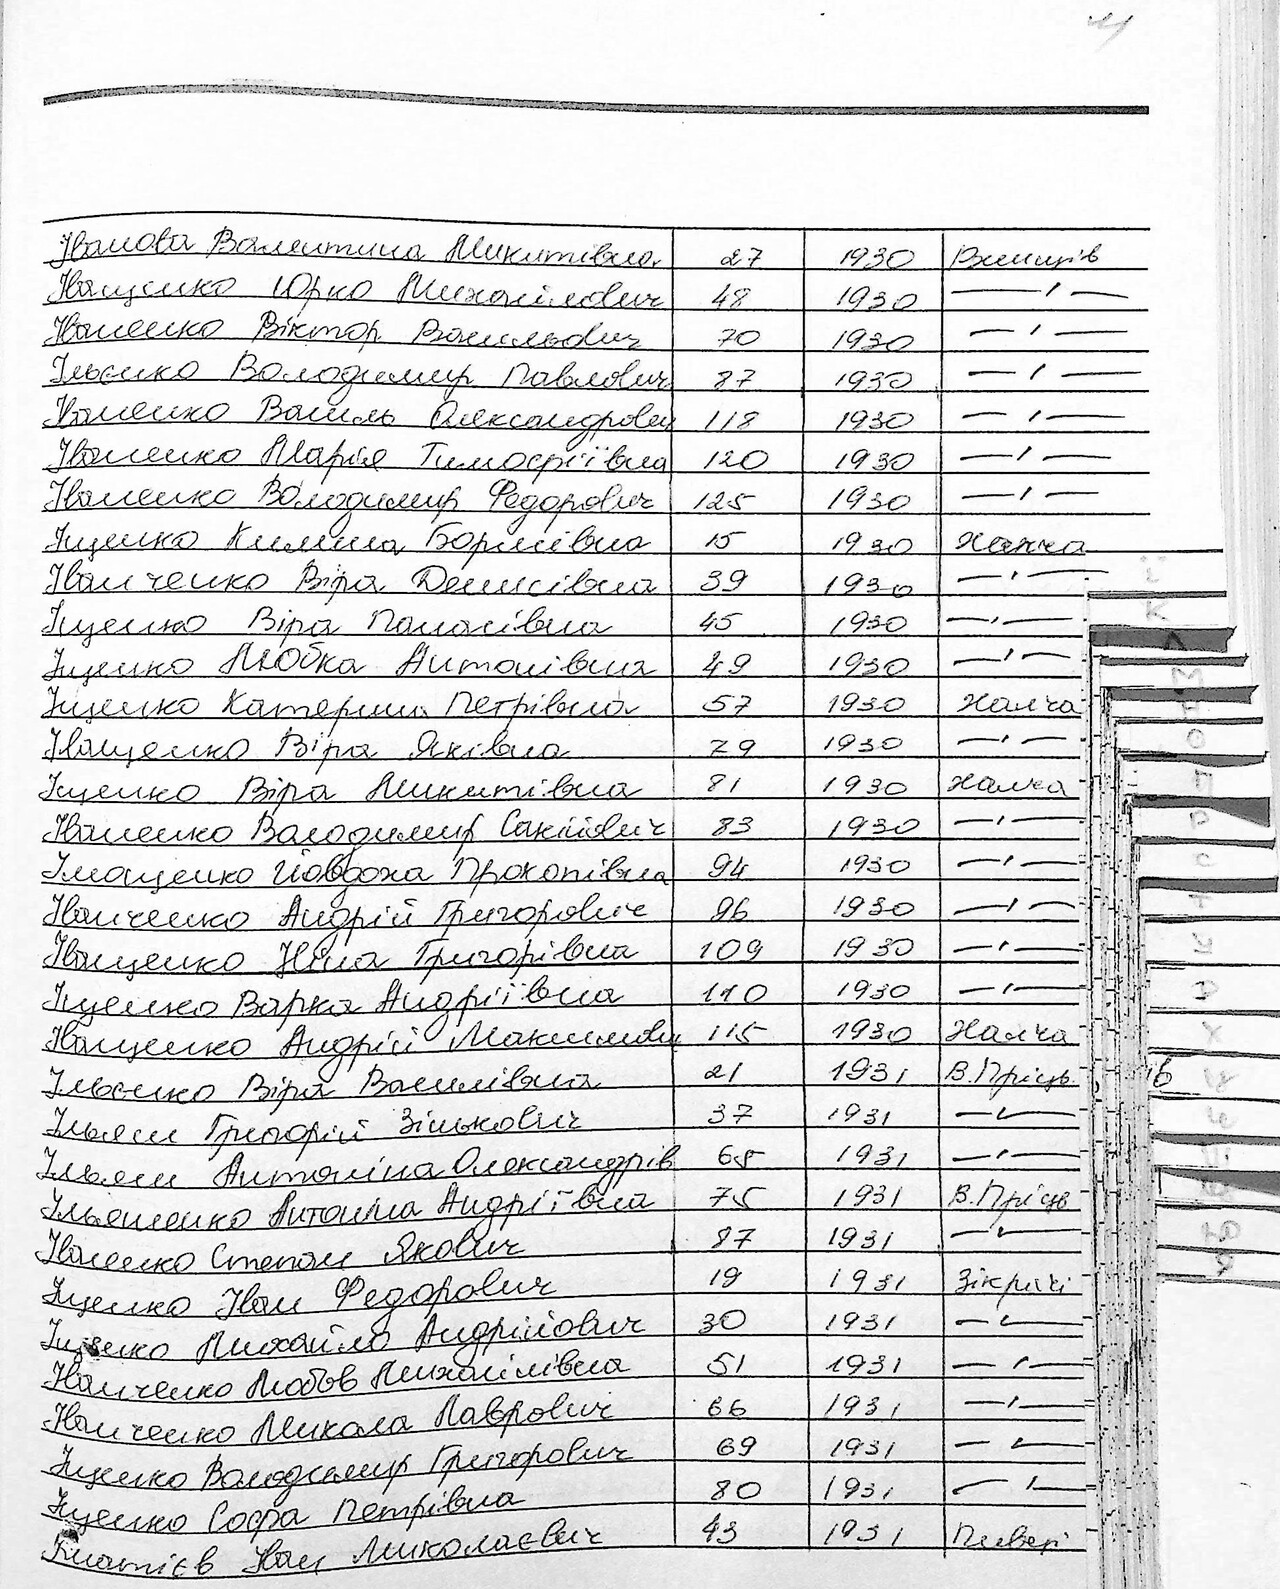 Іванова Валентина Микитівна 27 1930 Винців
Іващенко Юрко Михайлович 48 1930 —〃—
Іваненко Віктор Васильович 70 1930 —〃—
Ільєнко Володимир Павлович 87 1930 —〃—
Іваненко Василь Олександрович 118 1930 —〃—
Іваненко Марія Тимофіївна 120 1930 —〃—
Іваненко Володимир Федорович 125 1930 —〃—
Іщенко Килина Борисівна 15 1930 Халча
Іванченко Віра Денисівна 39 1930 —〃—
Іщенко Віра Панасівна 45 1930 —〃—
Іщенко Любка Антонівна 49 1930 —〃—
Іщенко Катерина Петрівна 57 1930 Халча
Іващенко Віра Яківна 79 1930 —〃—
Іщенко Віра Микитівна 81 1930 Халча
Іваненко Володимир 83 1930 —〃—
Йовдоха Прокопівна 94 1930 —〃—
Іванченко Андрій Григорович 96 1930 —〃—
Іващенко Ніна Григорівна 109 1930 —〃—
Іщенко Варка Андріївна 110 1930 —〃—
Іващенко Андрій Максимович 115 1930 Халча
Ільєнко Віра Василівна 21 1931 В.Пріцьків
Ільяш Григорій Зінькович 37 1931 —〃—
Ільяш Антоніна Олександрів 65 1931 —〃—
Ільяшенко Антоніна Андріївна 75 1931 В.Пріцьк
Іваненко Степан Якович 87 1931 —〃—
Іщенко Іван Федорович 19 1931 Зікрачі
Іщенко Михайло Андрійович 30 1931 —〃—
Іванченко Любов Михайлівна 51 1931 —〃—
Іванченко Микола Лаврович 66 1931 —〃—
Іщенко Володимир Григорович 69 1931 —〃—
Іщенко Софа Петрівна 80 1931 —〃—
Ігнатієв Іван Миколаєвич 43 1931 Пивці